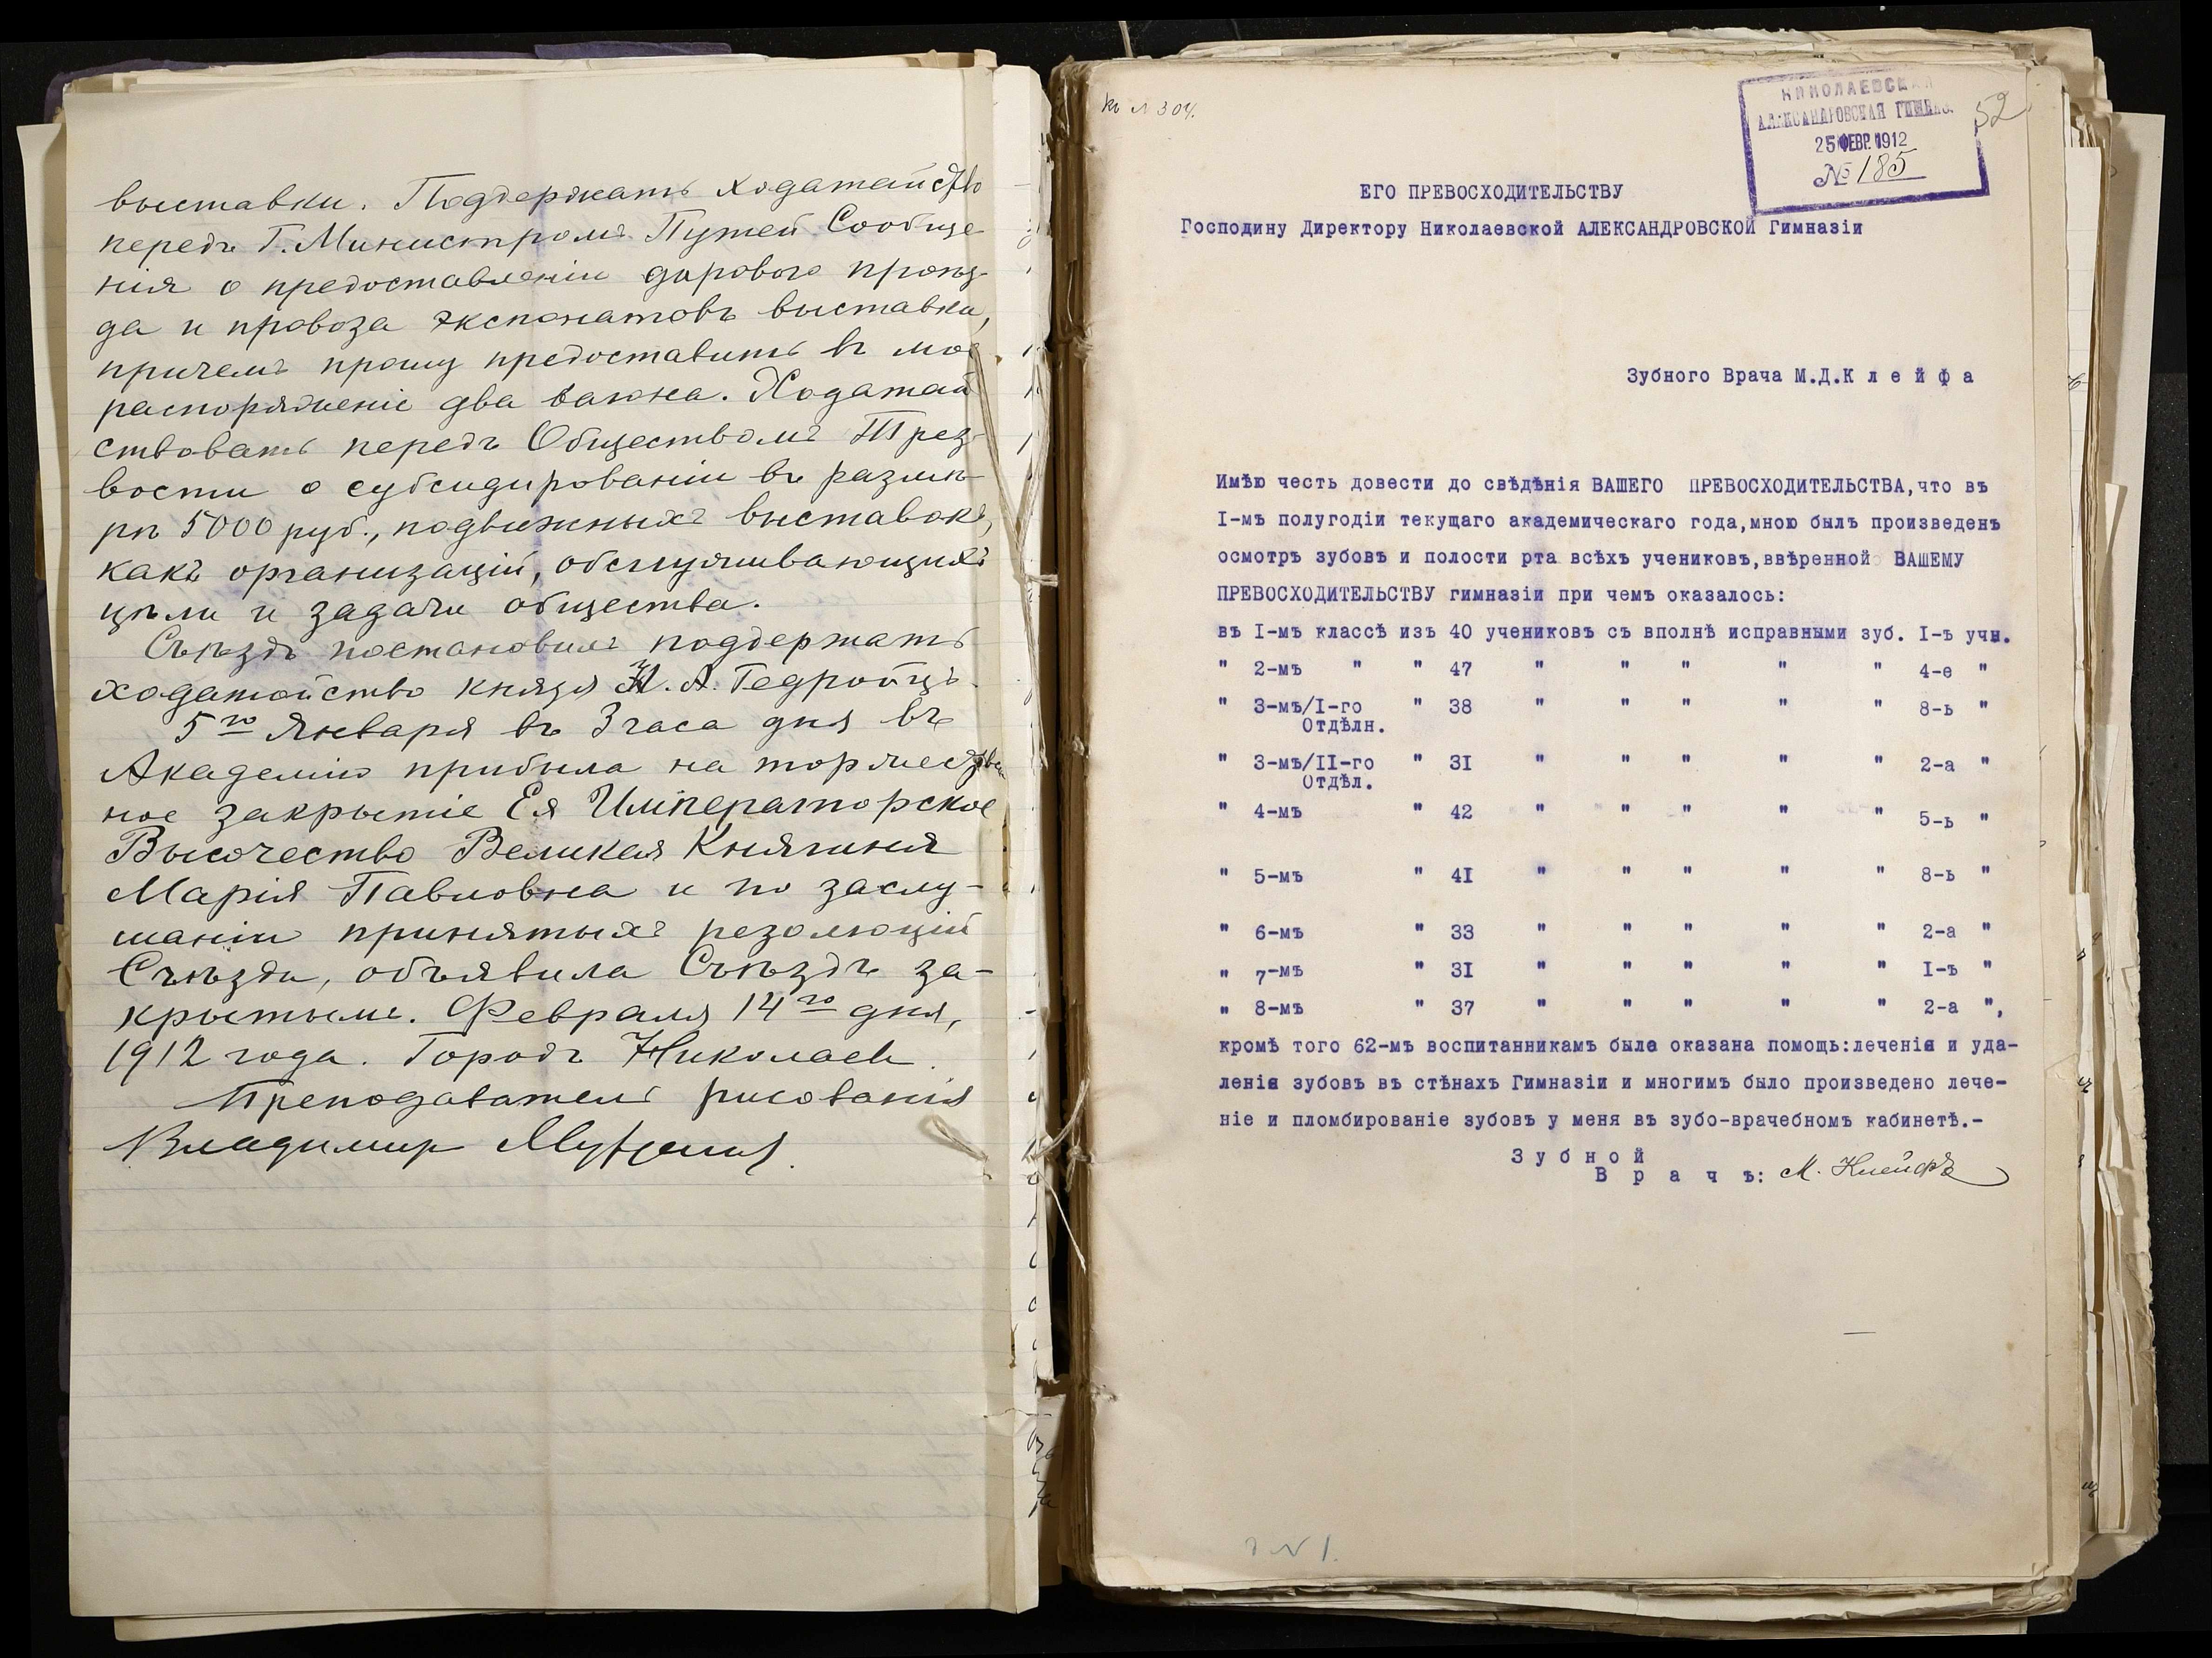 выставки. Поддержать ходатайство
передъ Г. Министромъ Путей Сообще
нія о предоставленіи дарового проѣз-
да и провоза экспонатовъ выставки,
причемъ прошу предоставить въ мое
распоряженіе два вагона. Ходатай
ствовать передъ Обществомъ Трез-
вости о субсидированіи въ размѣ-
рѣ 5000 руб., подвижныхъ выставокъ,
какъ организацій, обслуживающихъ
цѣли и задачи общества.
Съѣздъ постановилъ поддержать
ходатайство князя А. Гедройцъ.
5го Января въ 3 часа дня въ
Академію прибыла на торжествен
ное закрытіе Ея Императорское
Высочество Великая Княгиня
Марія Павловна и по заслу-
шаніи принятыхъ резолюцій
Съѣзда, объявила Съѣздъ за-
крытымъ. Февраля 14го дня,
1912 года. Городъ Николаевъ.
Преподаватель рисованія
Владимир
къ № 304.
НИКОЛАЕВСКАЯ
АЛЕКСАНДРОВСКАЯ ГИМНАЗ.
25 ФЕВР. 1912
№ 185
52
ЕГО ПРЕВОСХОДИТЕЛЬСТВУ
Господину Директору Николаевской АЛЕКСАНДРОВСКОЙ Гимназіи
Зубного Врача М.Д.К л е й ф а
Имѣю честь довести до свѣдѣнія ВАШЕГО ПРЕВОСХОДИТЕЛЬСТВА,что въ
I-мъ полугодіи текущаго академическаго года,мною былъ произведенъ
осмотръ зубовъ и полости рта всѣхъ учениковъ,ввѣренной ВАШЕМУ
ПРЕВОСХОДИТЕЛЬСТВУ гимназіи при чемъ оказалось:
въ I-мъ классѣ изъ 40 учениковъ съ вполнѣ исправными зуб. I-ъ учн.
" 2-мъ " " 47 " " " " " 4-е "
" 3-мъ/I-го " 38 " " " " " 8-ь "
Отдѣлн.
" 3-мъ/II-го " 3I " " " " " 2-а "
Отдѣл.
" 4-мъ " 42 " " " " " 5-ь "
" 5-мъ " 4I " " " " " 8-ь "
" 6-мъ " 33 " " " " " 2-а "
" 7-мъ " 3I " " " " " I-ъ "
" 8-мъ " 37 " " " " " 2-а ",
кромѣ того 62-мъ воспитанникамъ была оказана помощь:леченія и уда-
ленія зубовъ въ стѣнахъ Гимназіи и многимъ было произведено лече-
ніе и пломбированіе зубовъ у меня въ зубо-врачебномъ кабинетѣ.-
З у б н о й
В р а ч ъ: М. Клейфъ